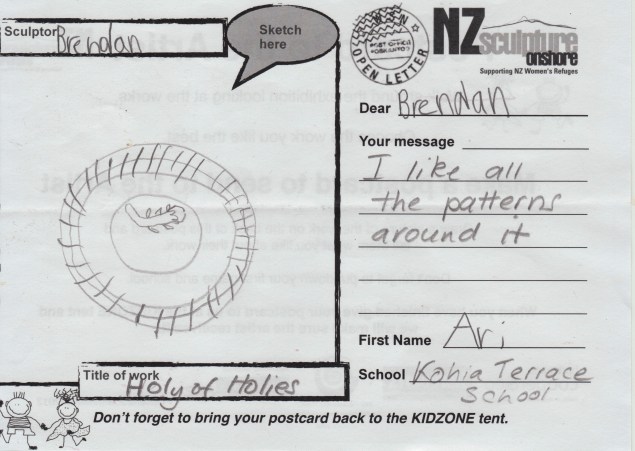 Sculptor Brendan
Sketch
here
POST OFFICE
OPEN LETTER
NZ sculpture
onshore
Supporting NZ Women's Refuges
Dear Brendan
Your message
I like all
the patterns
around it
First Name Ari
School Kohia Terrace
School
Title of work
Holy of Holies
Don't forget to bring your postcard back to the KIDZONE tent.